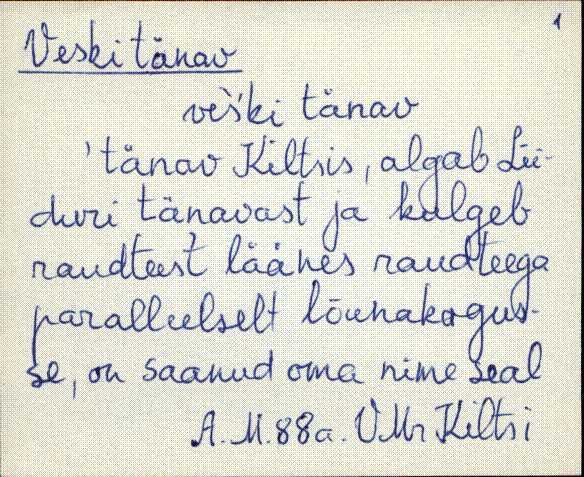 1
Veski tänav
veski tänav
'tänav Kiltsis, algab Lii-
duri tänavast ja kulgeb
raudteest läänes raudteega
paralleelselt lõunakagus-
se, on saanud oma nime seal
A. M. 88a. VMr Kiltsi